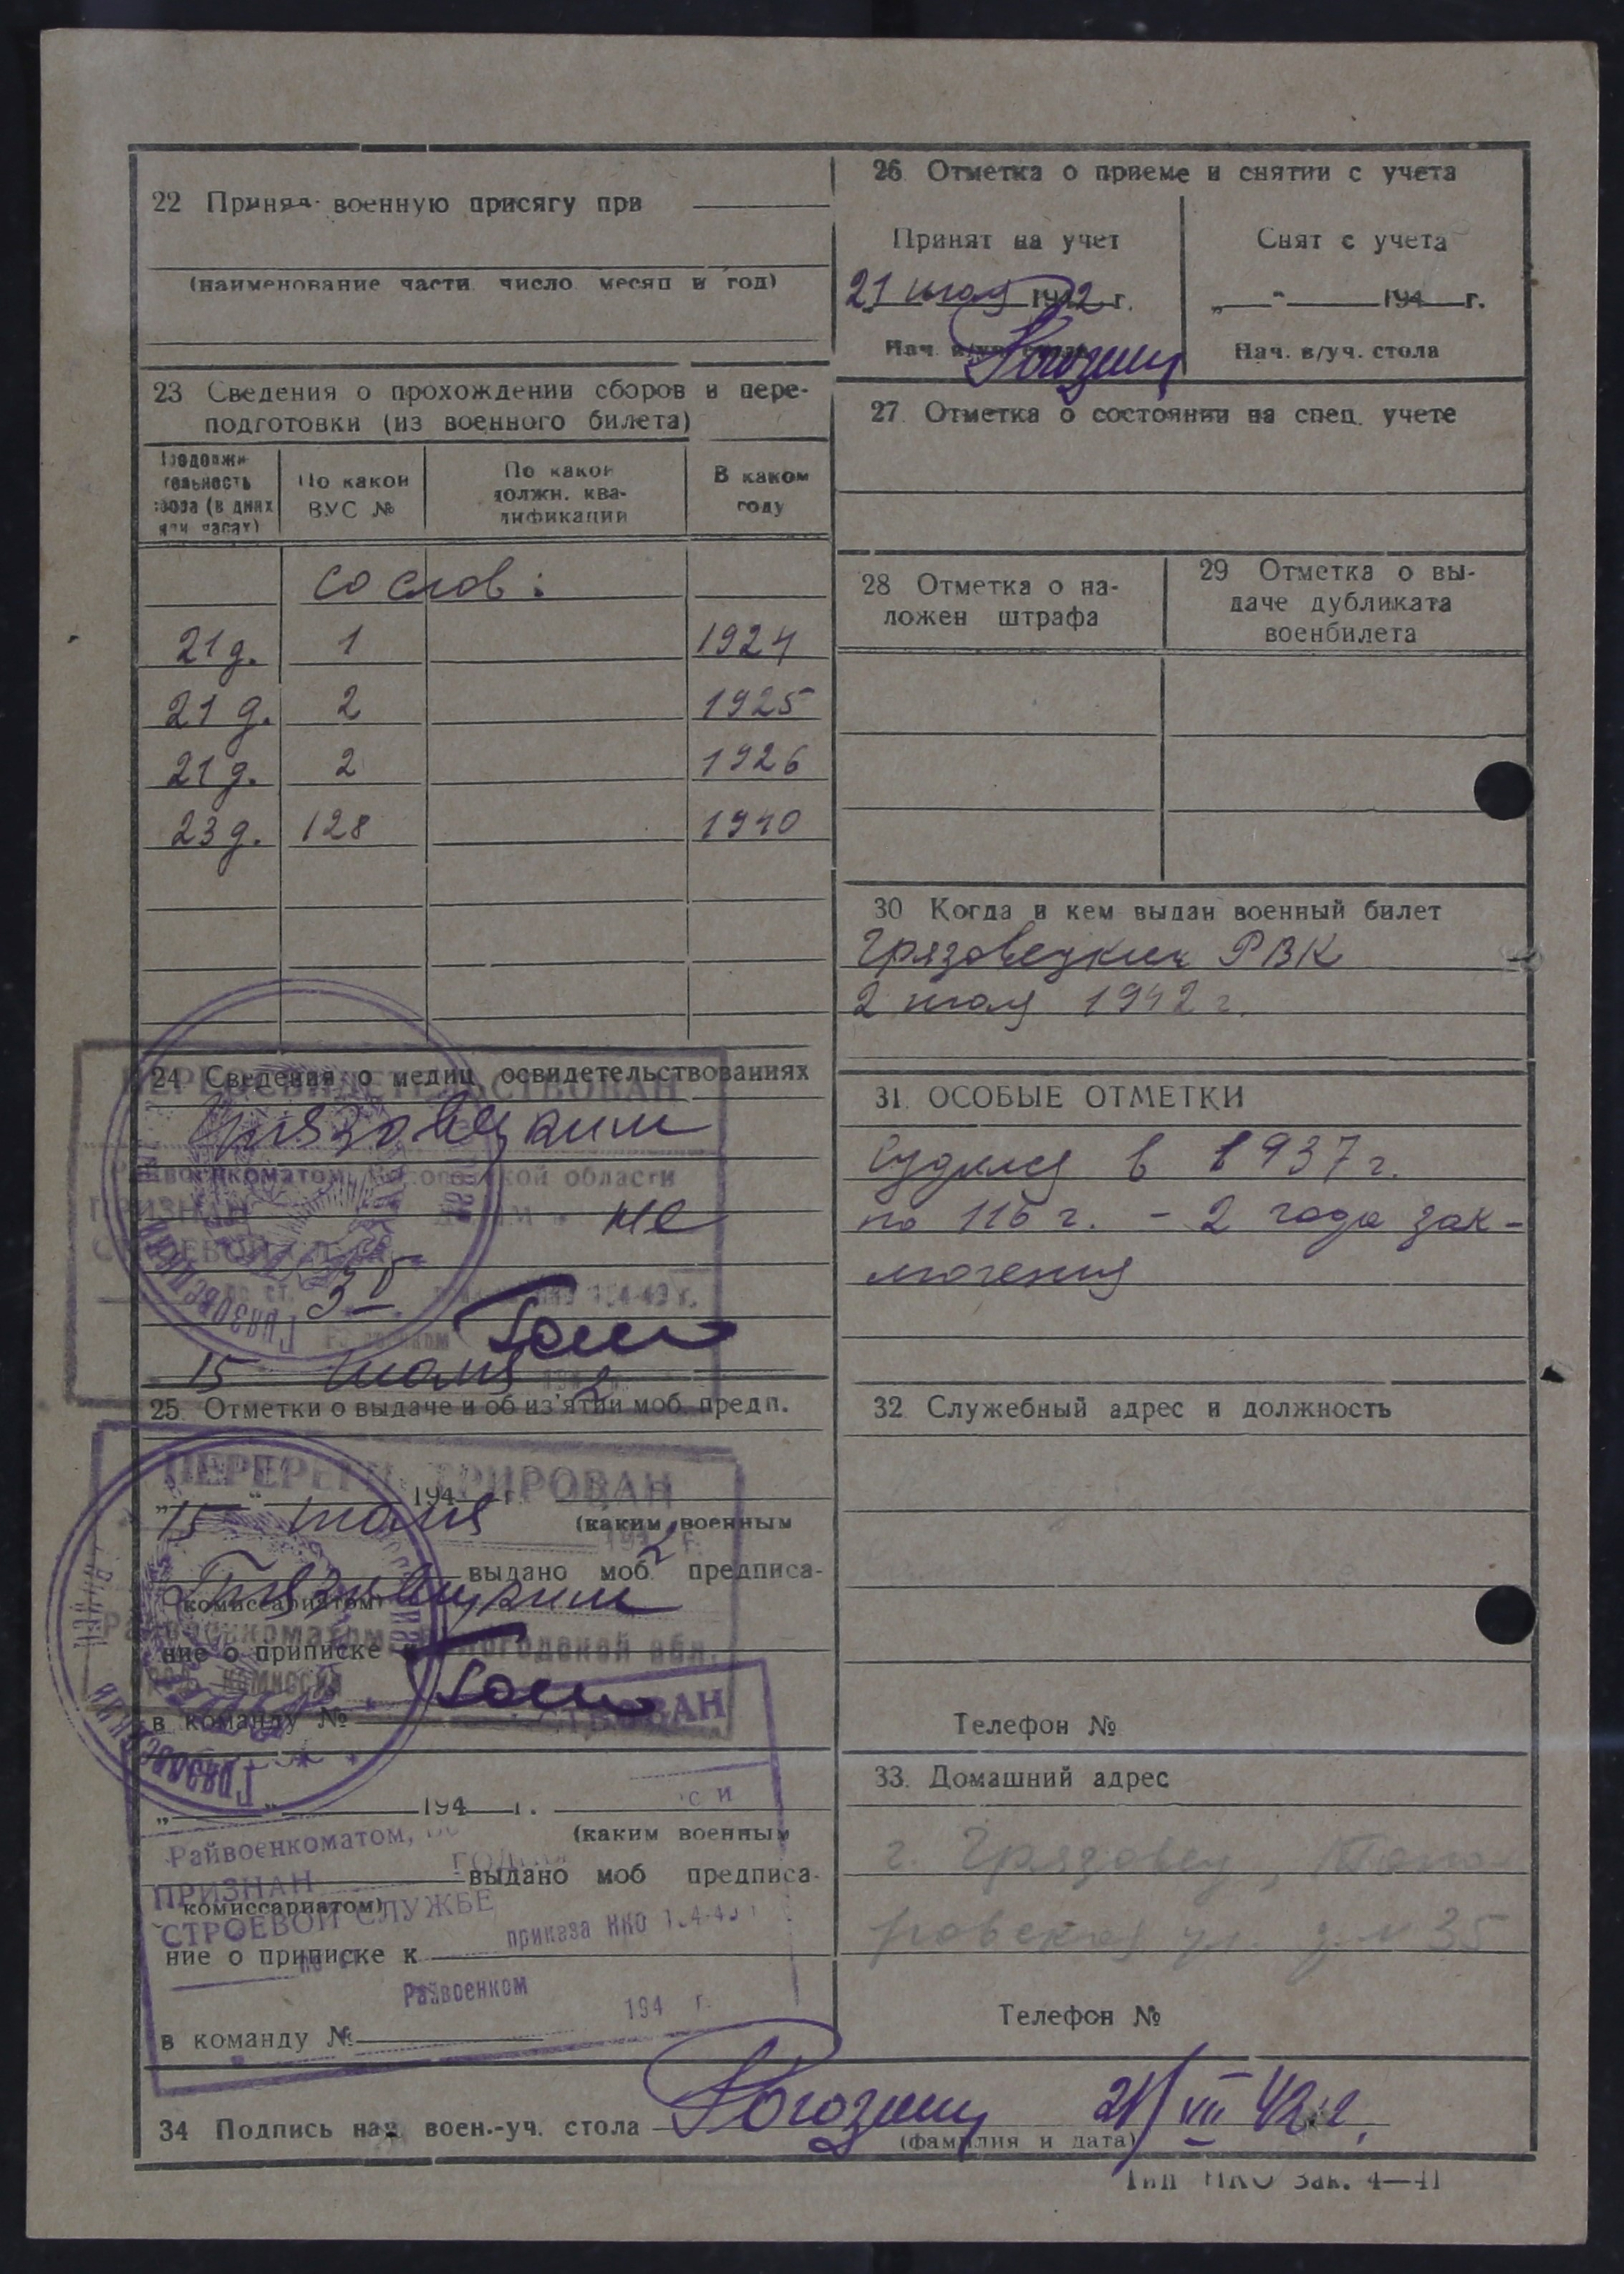 22 Принял военную присягу при
(наименование части число месяц и год)
23 Сведения о прохождении сборов и пере-
подготовки (из военного билета)
Продолжи-
тельность
сбора (в днях
или часах)
По какой
ВУС №
По какой
должн. ква-
лификации
В каком
году
со слов:
21 д. 1 1924
21 д. 2 1925
21 д. 2 1926
23 д. 128 1940
24 Сведения о медиц освидетельствованиях
ПЕРЕОСВИДЕТЕЛЬСТВОВАН
Грязовецким
Райвоенкоматом, Вологодской области
ПРИЗНАН не
СТРОЕВОЙ
15 июля 2
25. Отметки о выдаче и об из'ятии моб. предп.
ПЕРЕРЕГИСТРИРОВАН
„ “ 194 г.
15 июля 194 2 г.
(каким военным
выдано моб. предписа-
Грязовецким
комиссариатом)
Райвоенкоматом, Вологодской обл.
ние о приписке к
в команду №
„ “ 194 г.
Райвоенкоматом,
(каким военным
выдано моб предписа-
ПРИЗНАН
комиссариатом)
СТРОЕВОЙ СЛУЖБЕ
приказа НКО
ние о приписке к
Райвоенком
194 г.
в команду №
26 Отметка о приеме и снятии с учета
Принят на учет
21 июля 1942 г.
Нач. в/уч. стола
Рогозин
Снят с учета
„ “ 194 г.
Нач. в/уч. стола
27. Отметка о состоянии на спец. учете
28 Отметка о на-
ложен штрафа
29 Отметка о вы-
даче дубликата
военбилета
30 Когда и кем выдан военный билет
Грязовецким РВК
2 июля 1942 г.
31. ОСОБЫЕ ОТМЕТКИ
Судился в 1937 г.
по 116 г. - 2 года зак-
лючения
32 Служебный адрес и должность
Телефон №
33. Домашний адрес
г. Грязовец,
ул. д. № 35
Телефон №
34 Подпись нач. воен.-уч. стола Рогозин 21/VII 42 г.
(фамилия и дата)
Тип НКО Зак. 4—41